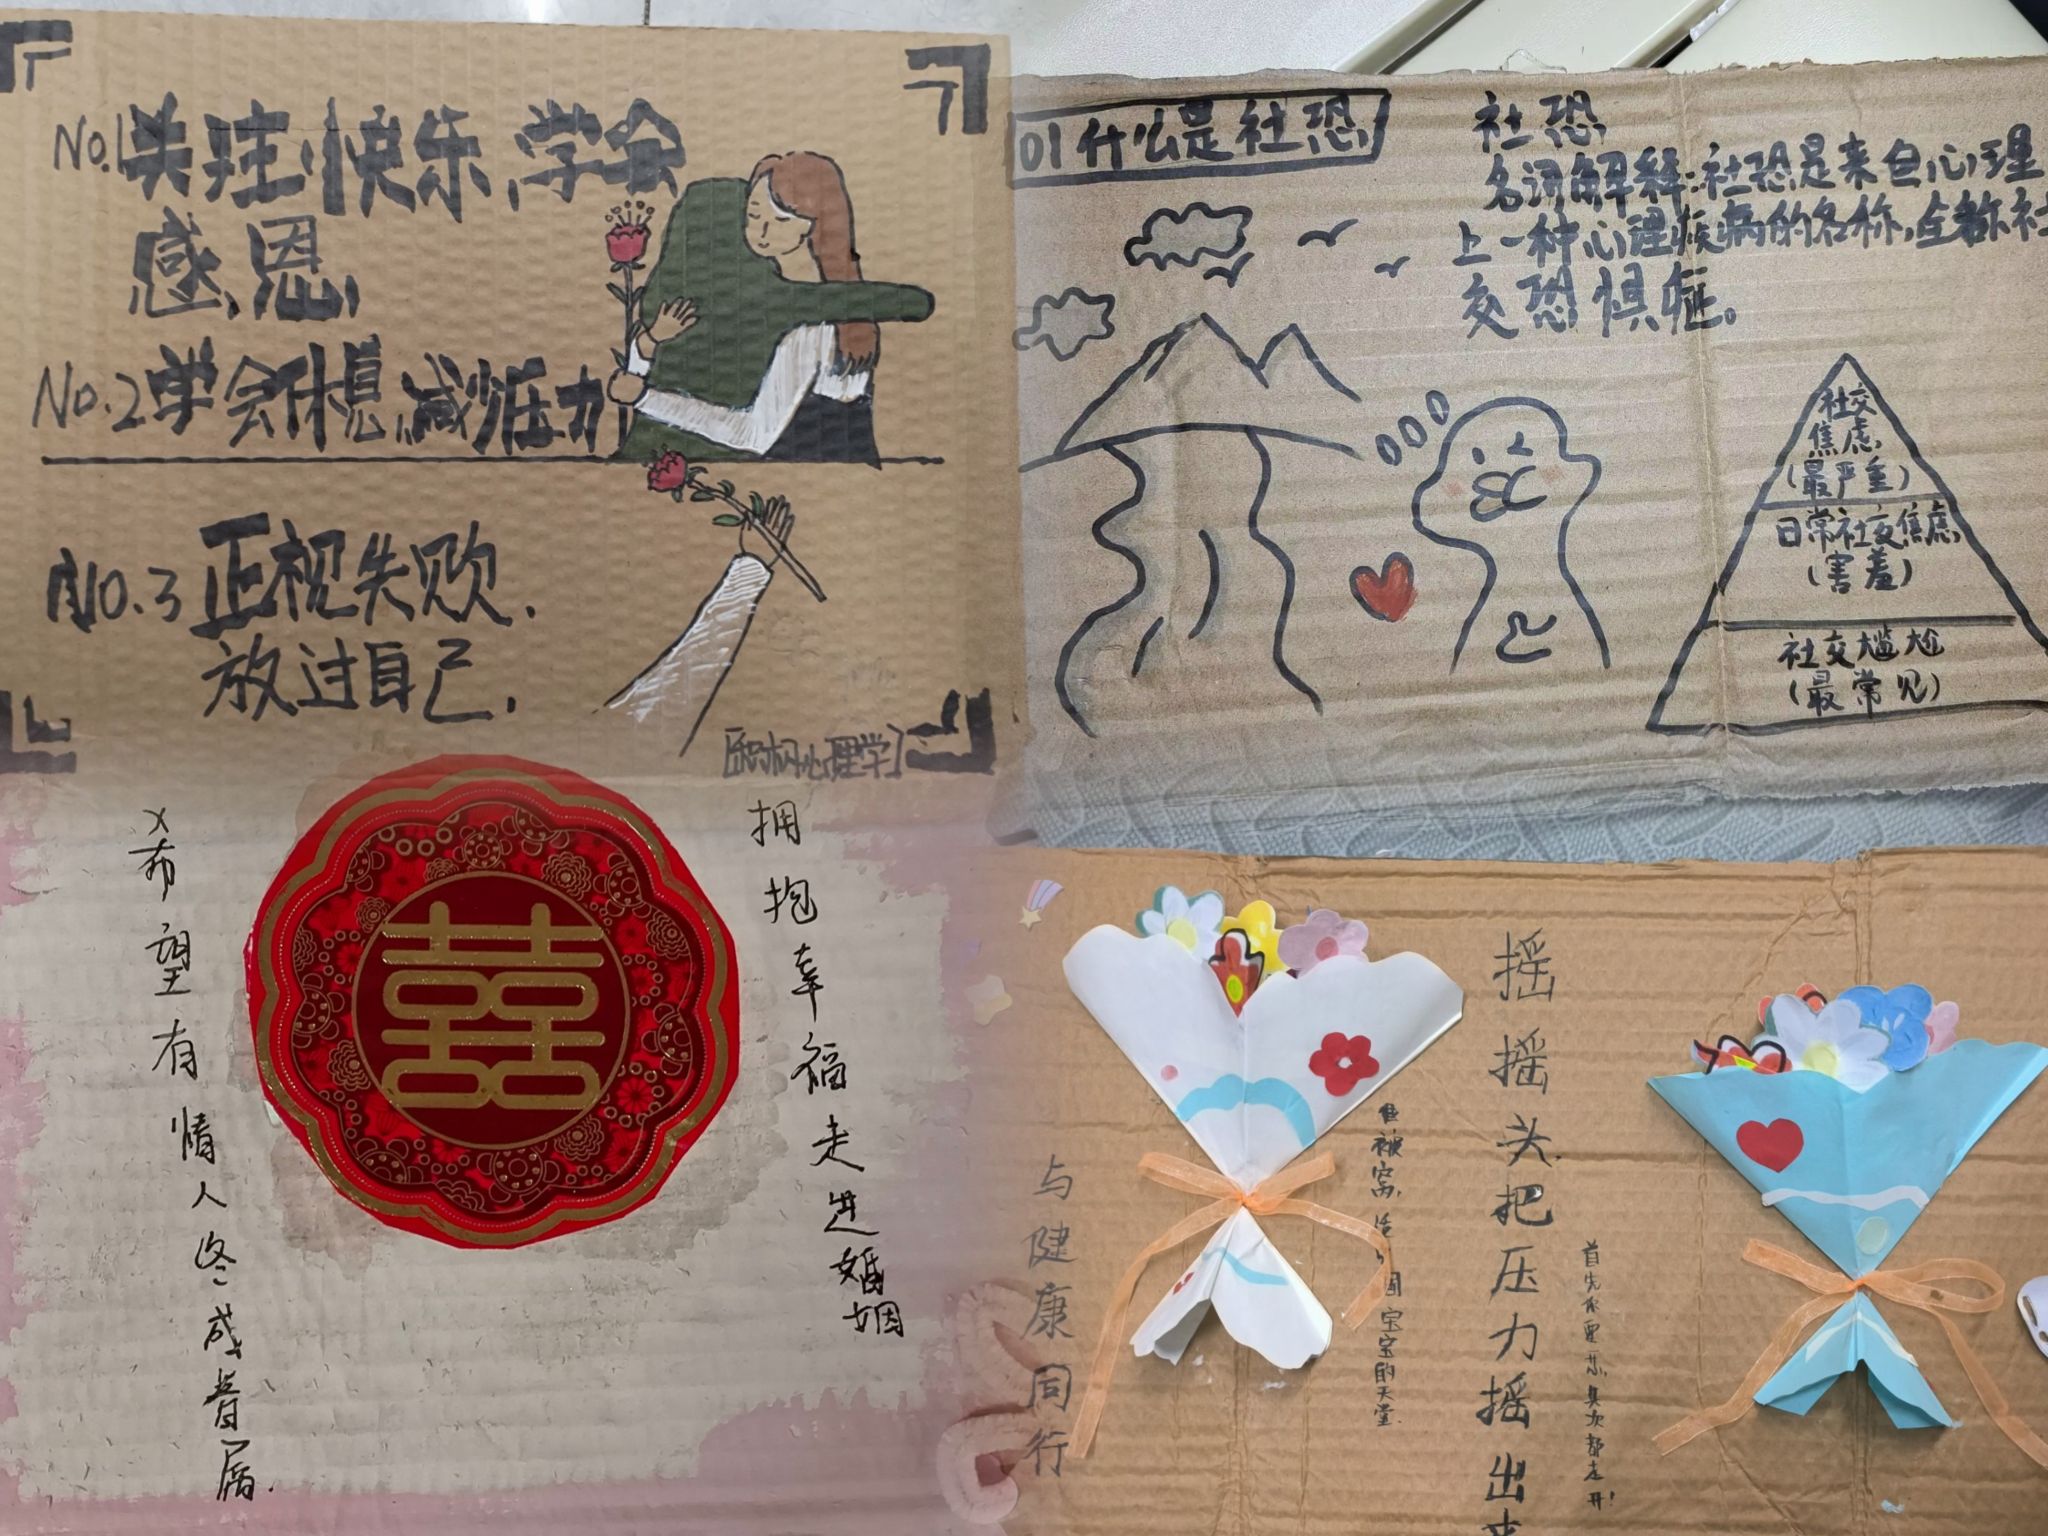 No.1关注快乐,学会
感恩
No.2学会休息,减少压力
No.3正视失败.
放过自己.
[积极心理学]
01什么是社恐
社恐
名词解释:社恐是来自心理
上一种心理疾病的名称,全称社
交恐惧症。
社交
焦虑
(最严重)
日常社交焦虑
(害羞)
社交尴尬
(最常见)
希望有情人终成眷属.
囍
拥抱幸福走进婚姻
与健康同行
被窝,
宝宝的天堂.
摇摇头把压力摇出来
首先你要乐,其次都走开!